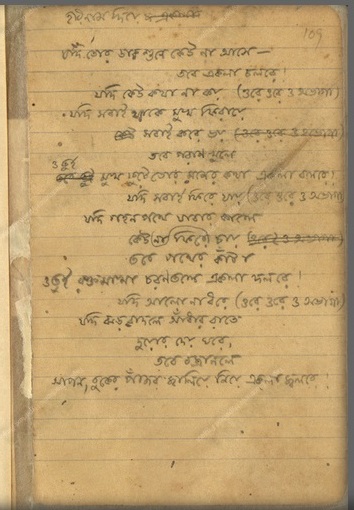 109
যদি তোর ডাক শুনে কেউ না আসে —
তবে একলা চলরে!
যদি কেউ কথা না কয় (ওরে ওরে ও অভাগা)
যদি সবাই থাকে মুখ ফিরায়ে
সবাই করে ভয়
তবে পরাণ খুলে
ও তুই মুখ ফুটে তোর মনের কথা একলা বলরে!
যদি সবাই ফিরে যায় (ওরে ওরে ও অভাগা)
যদি গহন পথে যাবার কালে
কেউ ফিরে চায়
তবে পথের কাঁটা
ও তুই রক্তমাখা চরণতলে একলা দলরে!
যদি আলো না ধরে (ওরে ওরে ও অভাগা)
যদি ঝড়বাদলে আঁধার রাতে
দুয়ার দেয় ঘরে,
তবে বজ্রানলে
আপন বুকের পাঁজর জ্বালিয়ে নিয়ে একলা জ্বলরে!